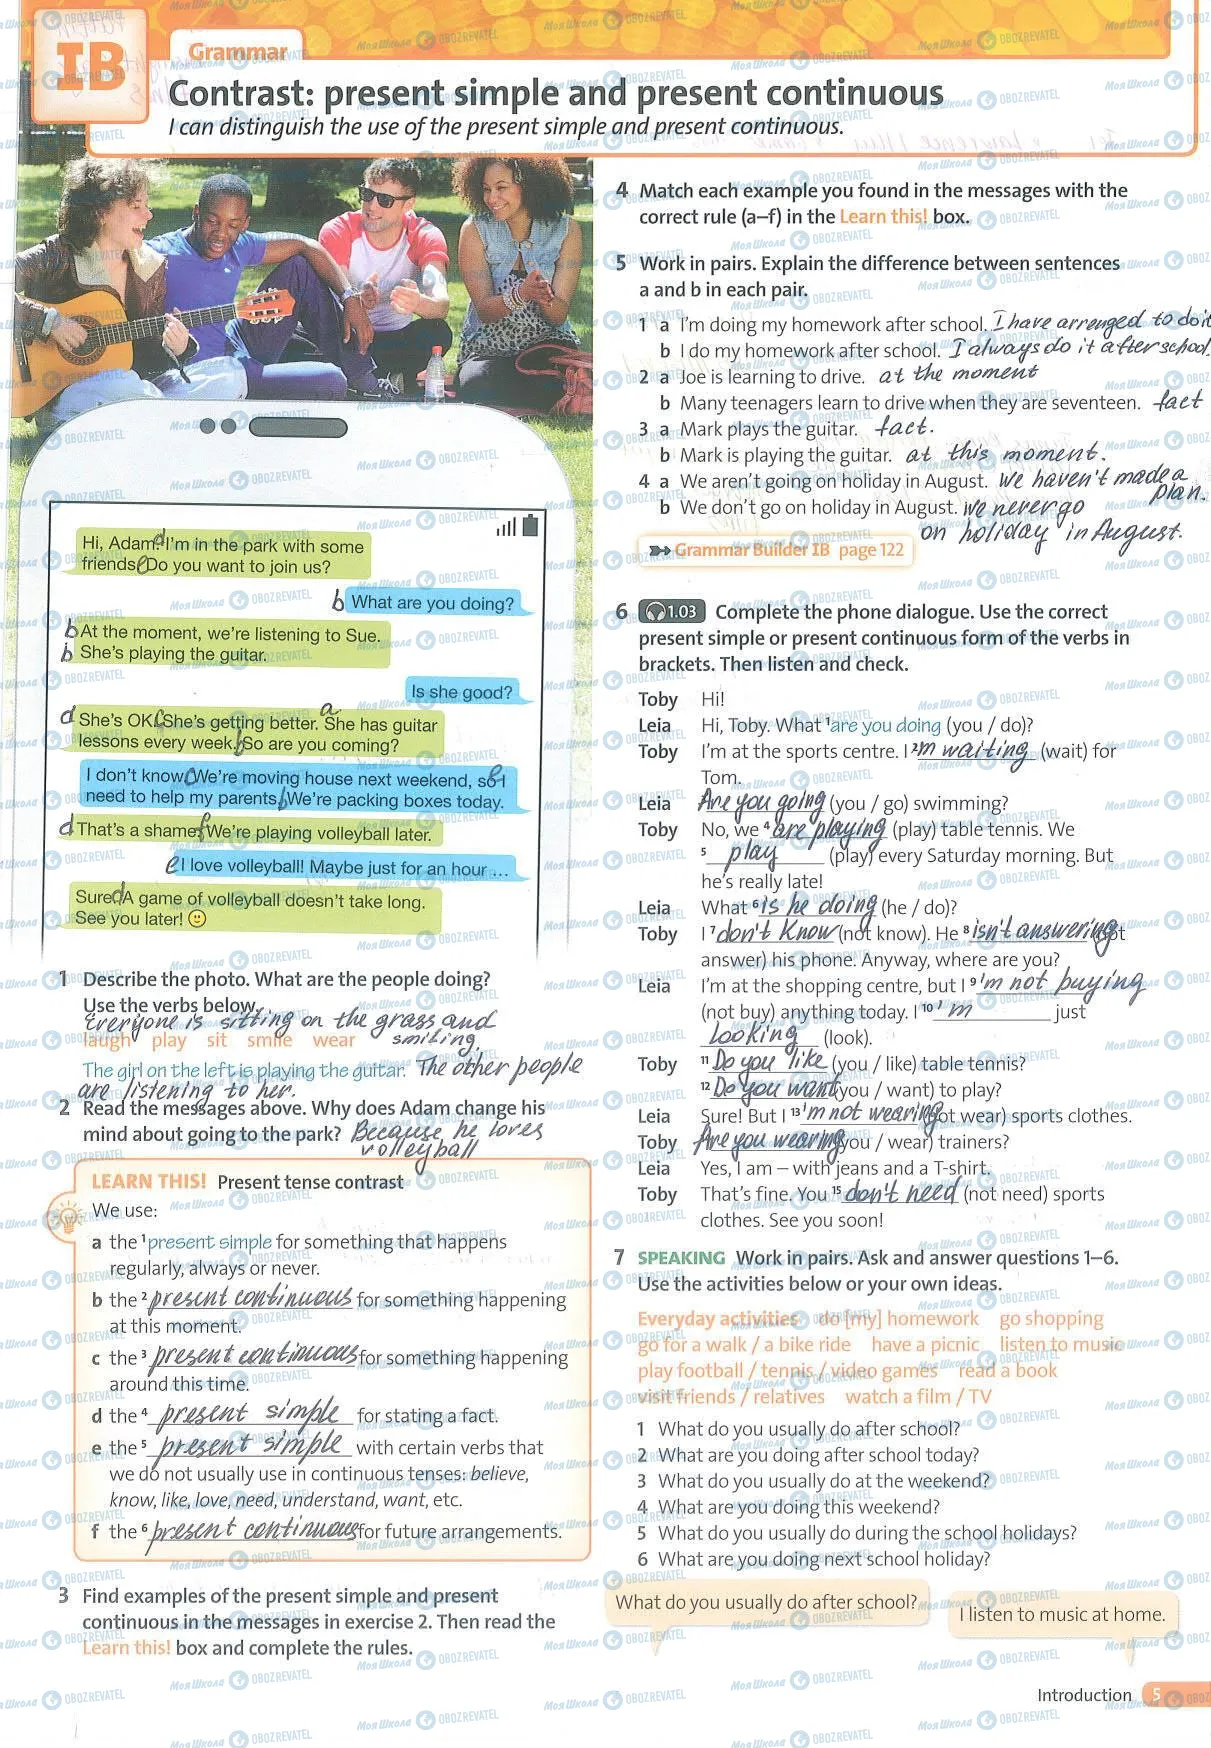 IB
Grammar
Contrast: present simple and present continuous
I can distinguish the use of the present simple and present continuous.
Hi, Adam. d I'm in the park with some
friends. e Do you want to join us?
b What are you doing?
b At the moment, we're listening to Sue.
b She's playing the guitar.
Is she good?
d She's OK. She's getting better. a She has guitar
lessons every week. b So are you coming?
I don't know. We're moving house next weekend, so e I
need to help my parents. b We're packing boxes today.
d That's a shame. f We're playing volleyball later.
e I love volleyball! Maybe just for an hour ...
Sure. d A game of volleyball doesn't take long.
See you later!
1 Describe the photo. What are the people doing?
Use the verbs below.
Everyone is sitting on the grass and
laugh play sit smile wear smiling.
The girl on the left is playing the guitar. The other people
are listening to her.
2 Read the messages above. Why does Adam change his
mind about going to the park? Because he loves
volleyball
LEARN THIS! Present tense contrast
We use:
a the 1 present simple for something that happens
regularly, always or never.
b the 2 present continuous for something happening
at this moment.
c the 3 present continuous for something happening
around this time.
d the 4 present simple for stating a fact.
e the 5 present simple with certain verbs that
we do not usually use in continuous tenses: believe,
know, like, love, need, understand, want, etc.
f the 6 present continuous for future arrangements.
3 Find examples of the present simple and present
continuous in the messages in exercise 2. Then read the
Learn this! box and complete the rules.
4 Match each example you found in the messages with the
correct rule (a–f) in the Learn this! box.
5 Work in pairs. Explain the difference between sentences
a and b in each pair.
1 a I'm doing my homework after school. I have arrenged to do it
b I do my homework after school. I always do it after school.
2 a Joe is learning to drive. at the moment
b Many teenagers learn to drive when they are seventeen. fact
3 a Mark plays the guitar. fact.
b Mark is playing the guitar. at this moment.
4 a We aren't going on holiday in August. We haven't made a
plan.
b We don't go on holiday in August. we never go
on holiday in August.
Grammar Builder IB page 122
6 1.03 Complete the phone dialogue. Use the correct
present simple or present continuous form of the verbs in
brackets. Then listen and check.
Toby Hi!
Leia Hi, Toby. What 1 are you doing (you / do)?
Toby I'm at the sports centre. I 2 'm waiting (wait) for
Tom.
Leia Are you going (you / go) swimming?
Toby No, we 4 are playing (play) table tennis. We
5 play (play) every Saturday morning. But
he's really late!
Leia What 6 is he doing (he / do)?
Toby I 7 don't know (not know). He 8 isn't answering (not
answer) his phone. Anyway, where are you?
Leia I'm at the shopping centre, but I 9 'm not buying
(not buy) anything today. I 10 'm just
looking (look).
Toby 11 Do you like (you / like) table tennis?
12 Do you want (you / want) to play?
Leia Sure! But I 13 'm not wearing (not wear) sports clothes.
Toby Are you wearing (you / wear) trainers?
Leia Yes, I am – with jeans and a T-shirt.
Toby That's fine. You 15 don't need (not need) sports
clothes. See you soon!
7 SPEAKING Work in pairs. Ask and answer questions 1–6.
Use the activities below or your own ideas.
Everyday activities do [my] homework go shopping
go for a walk / a bike ride have a picnic listen to music
play football / tennis / video games read a book
visit friends / relatives watch a film / TV
1 What do you usually do after school?
2 What are you doing after school today?
3 What do you usually do at the weekend?
4 What are you doing this weekend?
5 What do you usually do during the school holidays?
6 What are you doing next school holiday?
What do you usually do after school?
I listen to music at home.
Introduction 5
Моя Школа OBOZREVATEL